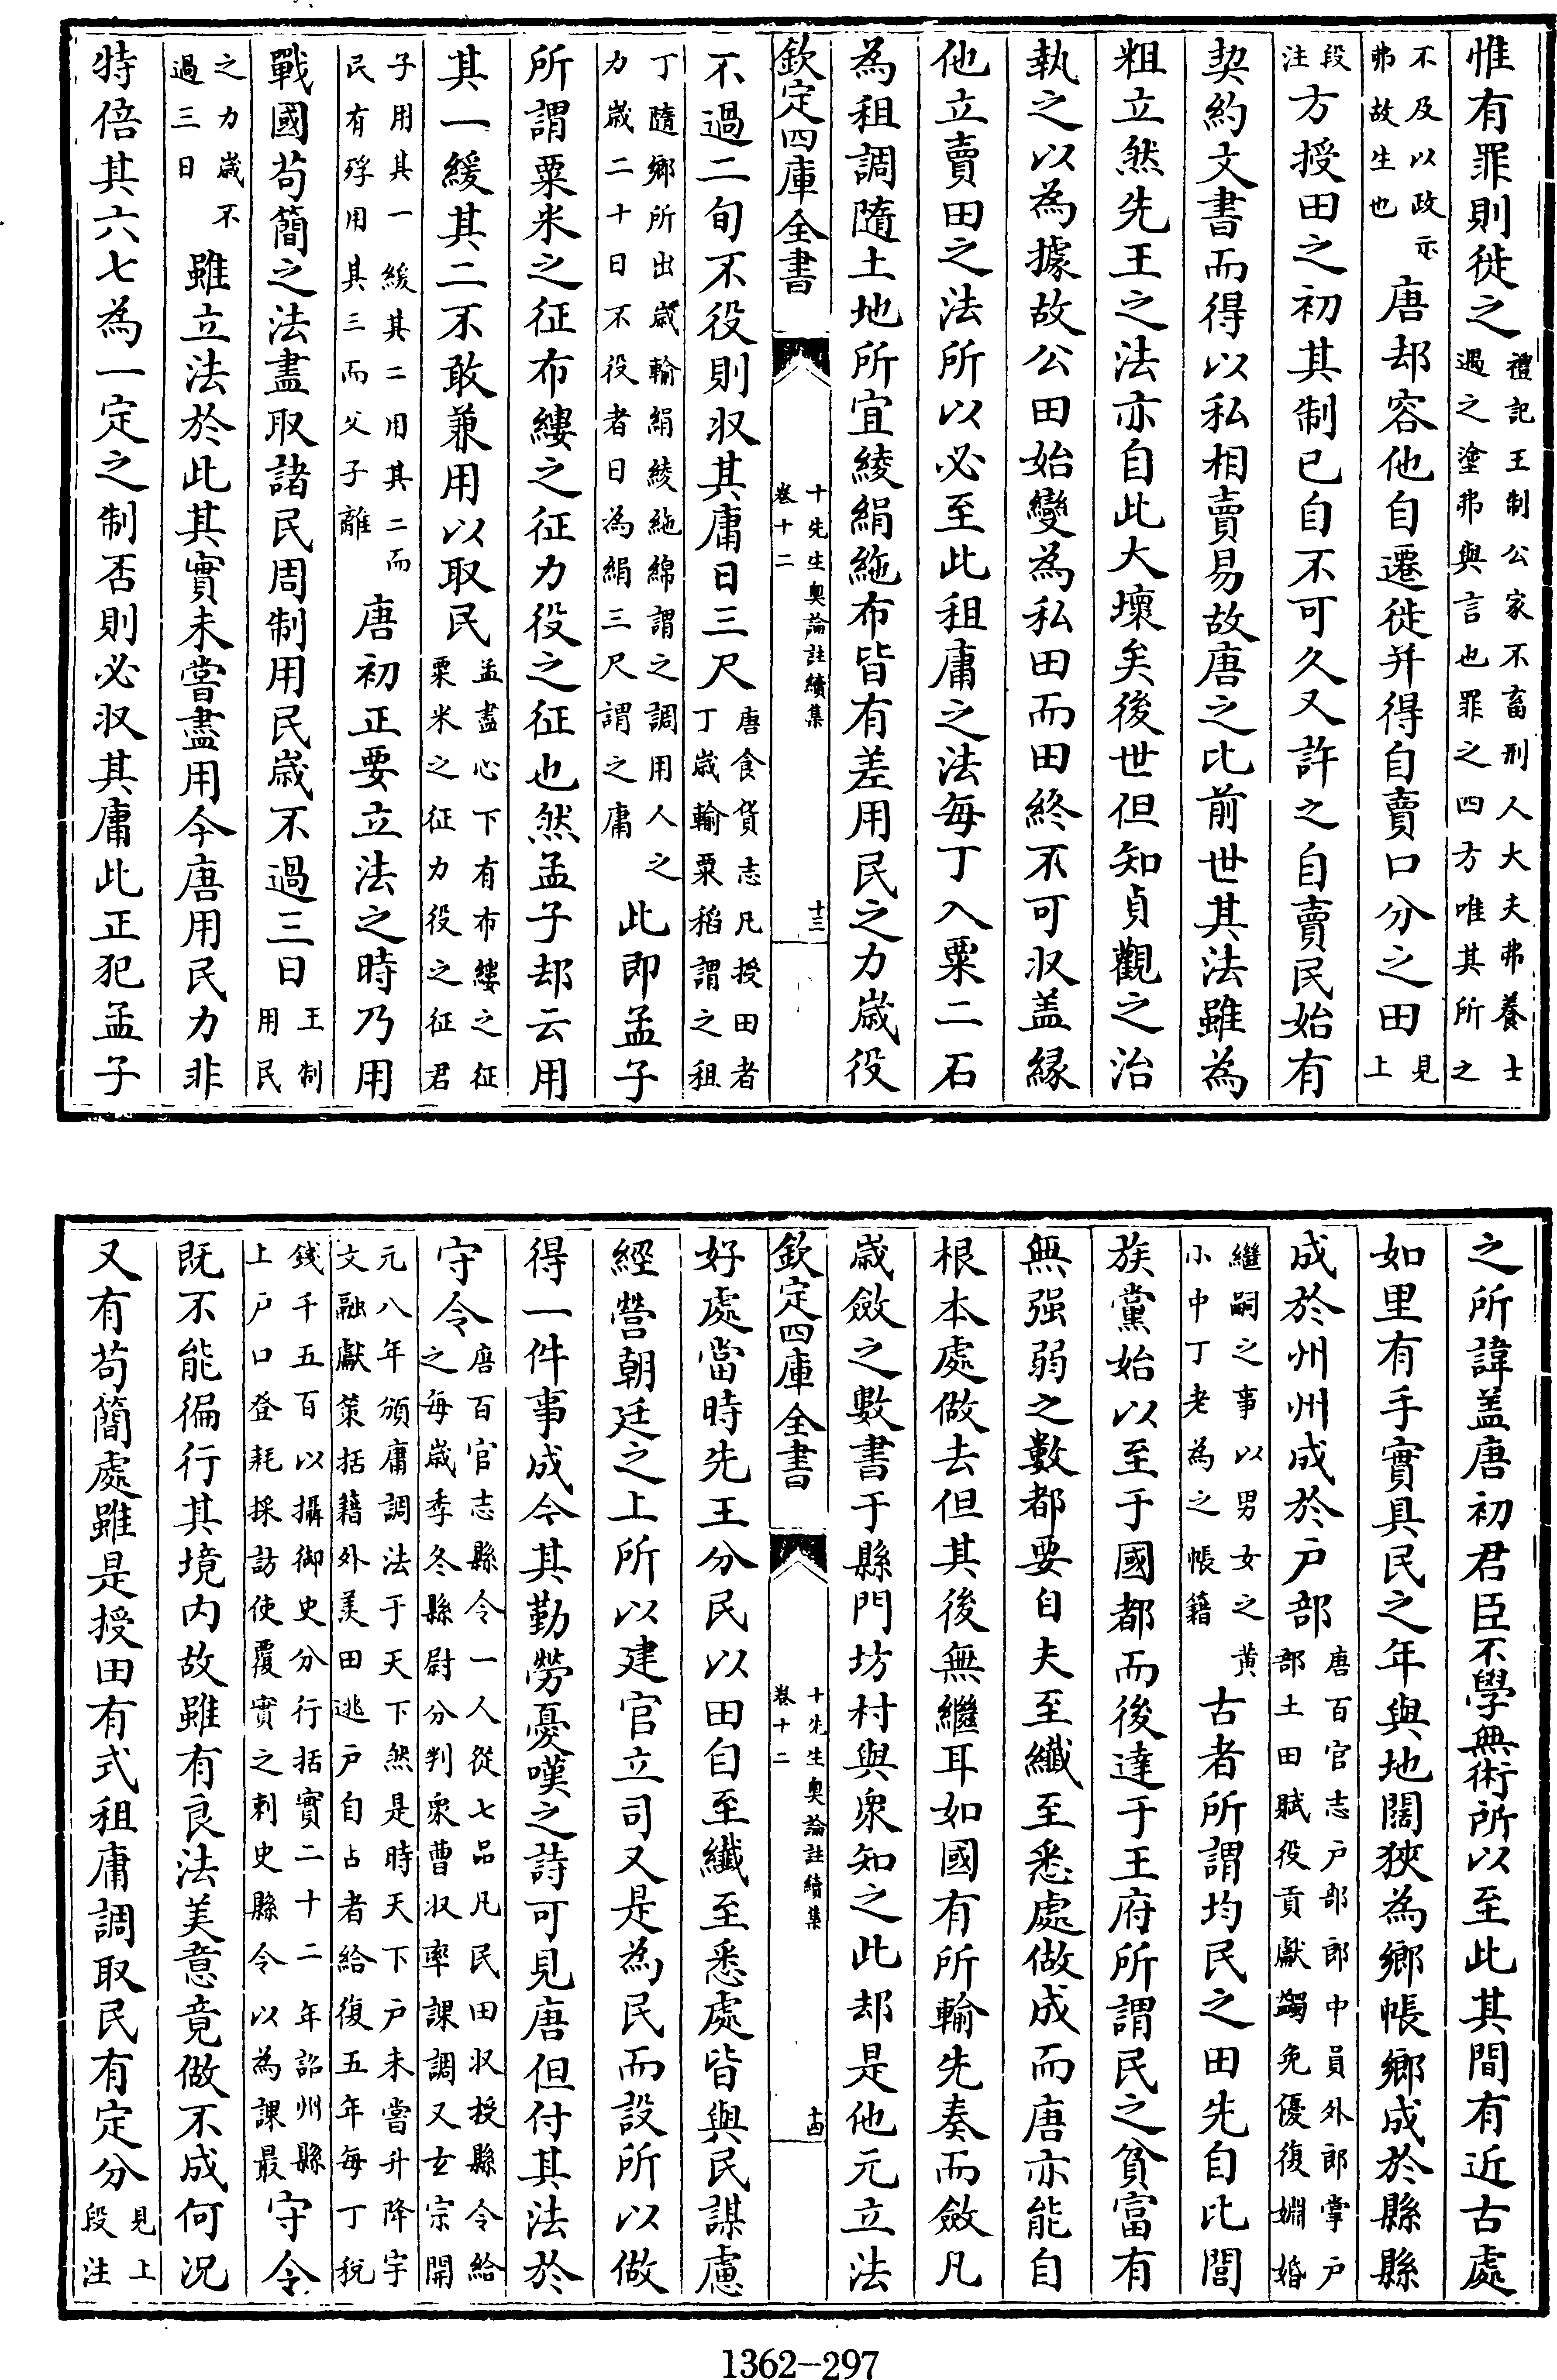 惟有罪則徙之禮記王制公家不畜刑人大夫弗養士遇之塗弗與言也罪之四方唯其所之
不及以政示弗故生也唐却容他自遷徙并得自賣口分之田見上
段注方授田之初其制已自不可久又許之自賣民始有
契約文書而得以私相賣易故唐之比前世其法雖為
粗立然先王之法亦自此大壞矣後世但知貞觀之治
執之以為據故公田始變為私田而田終不可収盖縁
他立賣田之法所以必至此租庸之法每丁入粟二石
為租調隨土地所宜綾絹絁布皆有差用民之力嵗役
欽定四庫全書 十先生奧論註續集 卷十二 十三
不過二旬不役則収其庸日三尺唐食貨志凡授田者丁嵗輸粟稻謂之租
丁隨鄉所出嵗輸絹綾絁綿謂之調用人之力嵗二十日不役者日為絹三尺謂之庸此即孟子
所謂粟米之征布縷之征力役之征也然孟子却云用
其一緩其二不敢兼用以取民孟盡心下有布縷之征粟米之征力役之征君
子用其一緩其二用其二而民有殍用其三而父子離唐初正要立法之時乃用
戰國苟簡之法盡取諸民周制用民嵗不過三日王制用民
之力嵗不過三日雖立法於此其實未嘗盡用今唐用民力非
特倍其六七為一定之制否則必収其庸此正犯孟子
之所諱盖唐初君臣不學無術所以至此其間有近古處
如里有手實具民之年與地闊狹為鄉帳鄉成於縣縣
成於州州成於戶部唐百官志戶部郎中員外郎掌戶部土田賦役貢獻蠲免優復婣婚
繼嗣之事以男女之黃小中丁老為之帳籍古者所謂均民之田先自比閭
族黨始以至于國都而後達于王府所謂民之貧富有
無强弱之數都要自夫至纖至悉處做成而唐亦能自
根本處做去但其後無繼耳如國有所輸先奏而斂凡
嵗斂之數書于縣門坊村與衆知之此却是他元立法
欽定四庫全書 十先生奧論註續集 卷十二 十四
好處當時先王分民以田自至纖至悉處皆與民謀慮
經營朝廷之上所以建官立司又是為民而設所以做
得一件事成今其勤勞憂嘆之詩可見唐但付其法於
守令唐百官志縣令一人從七品凡民田収授縣令給之每嵗季冬縣尉分判衆曹収率課調又玄宗開
元八年頒庸調法于天下然是時天下戶未嘗升降宇文融獻策括籍外羡田逃戶自占者給復五年每丁稅
錢千五百以攝御史分行括實二十二年詔州縣上戶口登耗採訪使覆實之刺史縣令以為課最守令
既不能徧行其境内故雖有良法美意竟做不成何况
又有苟簡處雖是授田有式租庸調取民有定分見上段注
1362-297